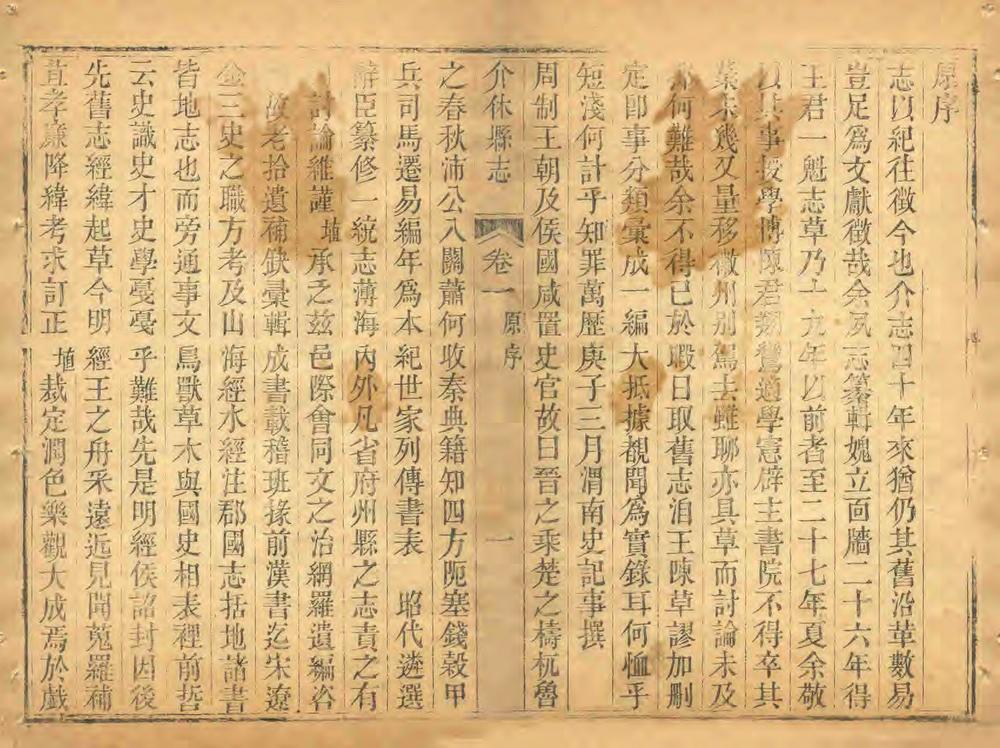 原序
志以紀往徵今也介志四十年來猶仍其舊沿革數易
豈足爲文獻徵哉余夙志纂輯媿立面牆二十六年得
王君一魁志草乃十九年以前者至二十七年夏余敬
以其事授學博陳君翔鸞適學憲辟主書院不得卒其
業未幾又量移徽州别駕去雖聊亦具草而討論未及
何難哉余不得已於暇日取舊志洎王陳草謬加刪
定卽事分類彙成一編大抵據覩聞爲實錄耳何恤乎
短淺何計乎知罪萬歷庚子三月渭南史記事撰
周制王朝及侯國咸置史官故曰晉之乘楚之檮杌魯
介休縣志 卷一 原序 一
之春秋沛公入關蕭何收秦典籍知四方阨塞錢穀甲
兵司馬遷易編年爲本紀世家列傳書表 昭代遴選
辭臣纂修一統志薄海內外凡省府州縣之志責之有
討論維謹埴承乏茲邑際會同文之治網羅遺編咨
故老拾遺補缺彙輯成書載稽班掾前漢書迄宋遼
金三史之職方考及山海經水經注郡國志括地諸書
皆地志也而旁通事文鳥獸草木與國史相表裡前哲
云史識史才史學戞戞乎難哉先是明經侯詔封因後
先舊志經緯起草今明經王之舟采遠近見聞蒐羅補
苴孝廉降緯考求訂正埴裁定潤色樂觀大成焉於戲